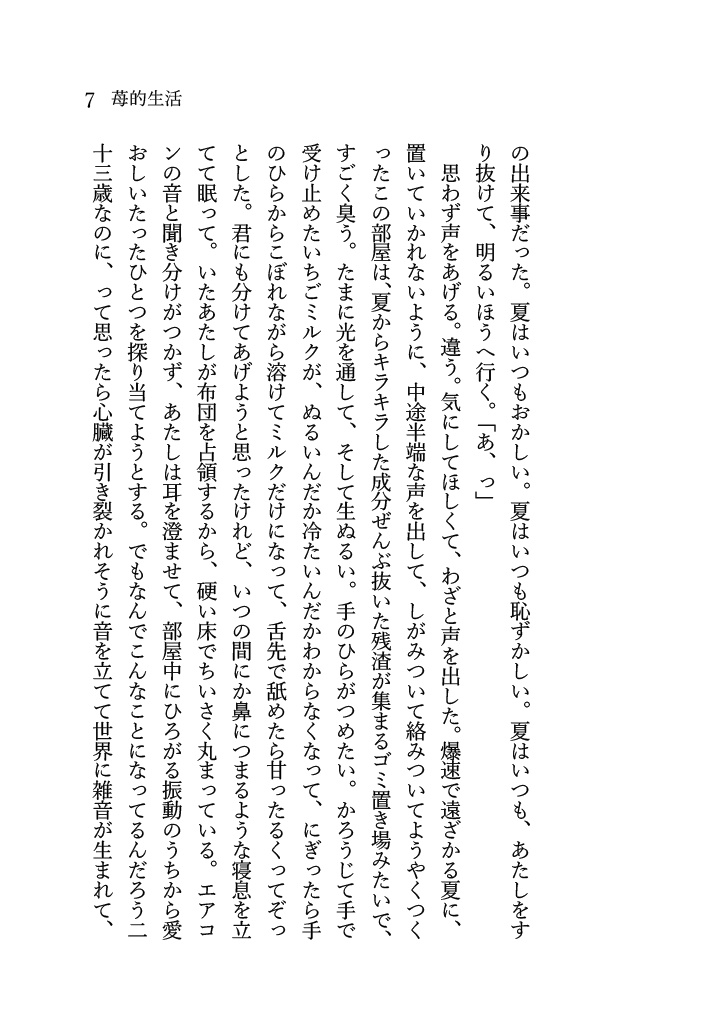 7 苺的生活
の出来事だった。夏はいつもおかしい。夏はいつも恥ずかしい。夏はいつも、あたしをす
り抜けて、明るいほうへ行く。「あ、っ」
　思わず声をあげる。違う。気にしてほしくて、わざと声を出した。爆速で遠ざかる夏に、
置いていかれないように、中途半端な声を出して、しがみついて絡みついてようやくつく
ったこの部屋は、夏からキラキラした成分ぜんぶ抜いた残渣が集まるゴミ置き場みたいで、
すごく臭う。たまに光を通して、そして生ぬるい。手のひらがつめたい。かろうじて手で
受け止めたいちごミルクが、ぬるいんだか冷たいんだかわからなくなって、にぎったら手
のひらからこぼれながら溶けてミルクだけになって、舌先で舐めたら甘ったるくってぞっ
とした。君にも分けてあげようと思ったけれど、いつの間にか鼻につまるような寝息を立
てて眠って。いたあたしが布団を占領するから、硬い床でちいさく丸まっている。エアコ
ンの音と聞き分けがつかず、あたしは耳を澄ませて、部屋中にひろがる振動のうちから愛
おしいたったひとつを探り当てようとする。でもなんでこんなことになってるんだろう二
十三歳なのに、って思ったら心臓が引き裂かれそうに音を立てて世界に雑音が生まれて、